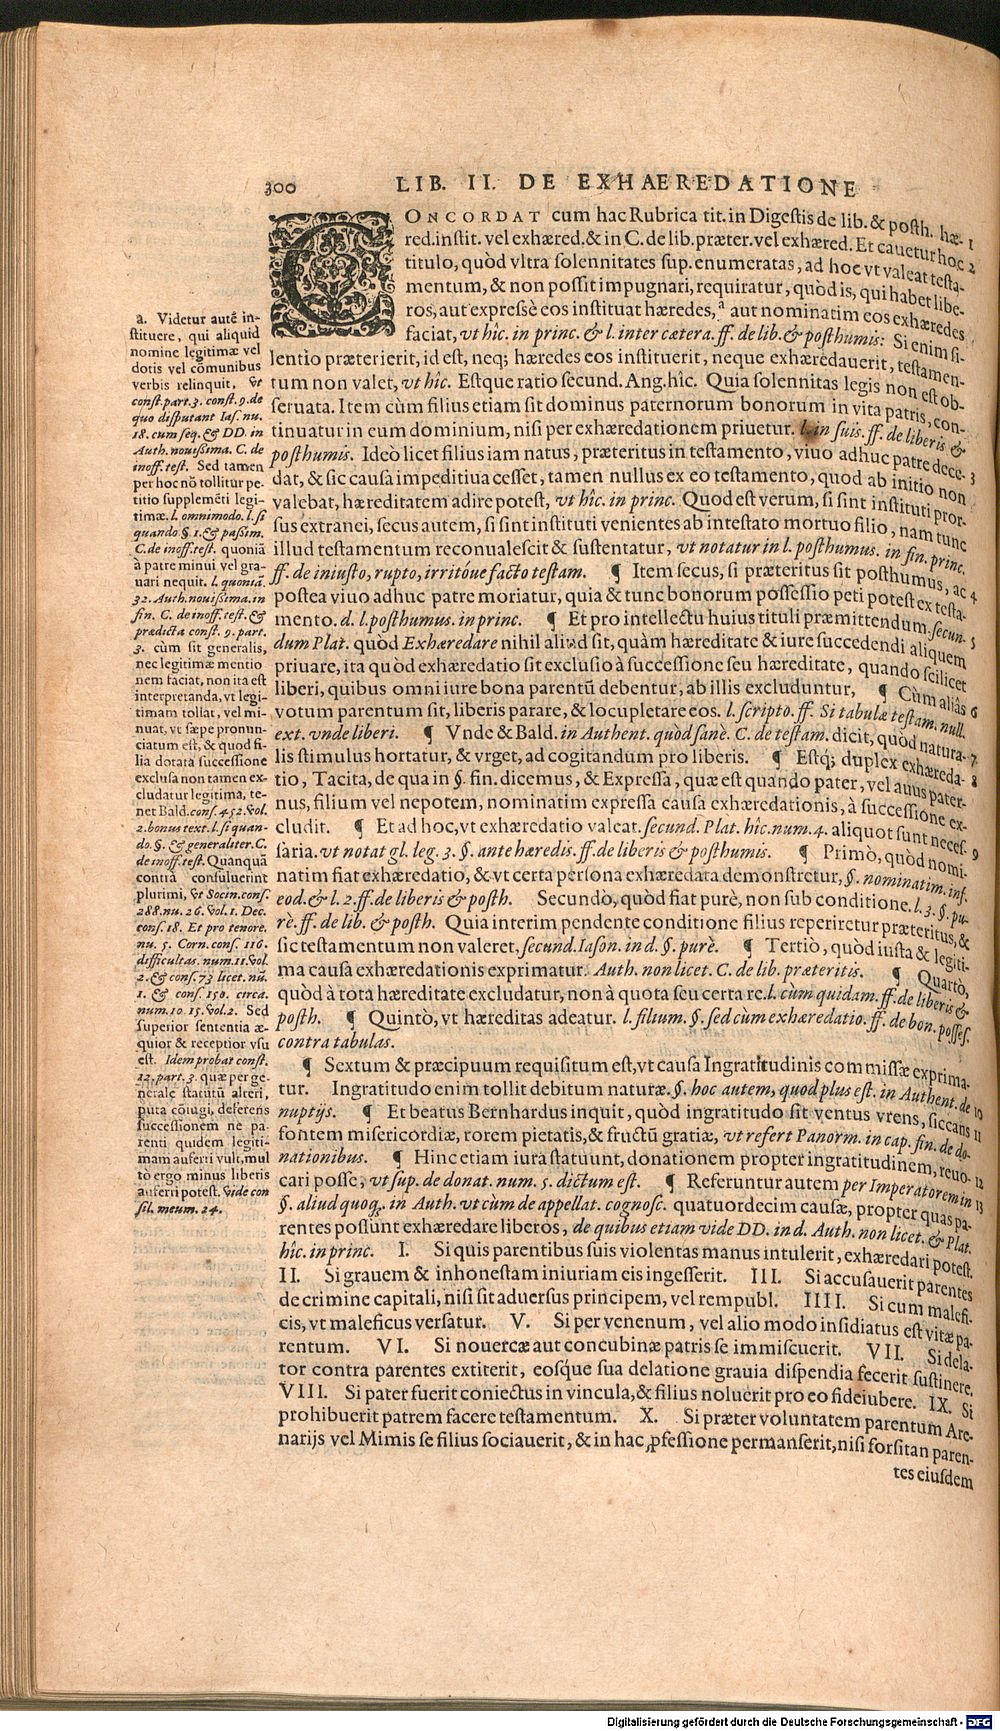 300 LIB. II. DE EXHAEREDATIONE
CONCORDAT cum hac Rubrica tit. in Digestis de lib. & posth. hæ- 1
red. instit. vel exhæred. & in C. de lib. præter. vel exhæred. Et cauetur hoc 2
titulo, quòd vltra solennitates sup. enumeratas, ad hoc vt valeat testa-
mentum, & non possit impugnari, requiratur, quòd is, qui habet libe-
ros, aut expressè eos instituat hæredes,ª aut nominatim eos exhæredes
faciat, vt hîc. in princ. & l. inter cætera. ff. de lib. & posthumis: Si enim si-
lentio præterierit, id est, neq; hæredes eos instituerit, neque exhæredauerit, testamen-
tum non valet, vt hîc. Estque ratio secund. Ang. hîc. Quia solennitas legis non est ob-
seruata. Item cùm filius etiam sit dominus paternorum bonorum in vita patris, con-
tinuatur in eum dominium, nisi per exhæredationem priuetur. l. in suis. ff. de liberis &
posthumis. Ideò licet filius iam natus, præteritus in testamento, viuo adhuc patre dece- 3
dat, & sic causa impeditiua cesset, tamen nullus ex eo testamento, quod ab initio non
valebat, hæreditatem adire potest, vt hîc. in princ. Quod est verum, si sint instituti pror-
sus extranei, secus autem, si sint instituti venientes ab intestato mortuo filio, nam tunc
illud testamentum reconualescit & sustentatur, vt notatur in l. posthumus. in fin. princ.
ff. de iniusto, rupto, irritóue facto testam. ¶ Item secus, si præteritus sit posthumus, ac 4
postea viuo adhuc patre moriatur, quia & tunc bonorum possessio peti potest ex testa-
mento. d. l. posthumus. in princ. ¶ Et pro intellectu huius tituli præmittendum, secun- 5
dum Plat. quòd Exhæredare nihil aliud sit, quàm hæreditate & iure succedendi aliquem
priuare, ita quòd exhæredatio sit exclusio à successione seu hæreditate, quando scilicet
liberi, quibus omni iure bona parentũ debentur, ab illis excluduntur, ¶ Cùm aliàs 6
votum parentum sit, liberis parare, & locupletare eos. l. scripto. ff. Si tabulæ testam. null.
ext. vnde liberi. ¶ Vnde & Bald. in Authent. quòd sanè. C. de testam. dicit, quòd natura- 7
lis stimulus hortatur, & vrget, ad cogitandum pro liberis. ¶ Estq; duplex exhæreda- 8
tio, Tacita, de qua in §. fin. dicemus, & Expressa, quæ est quando pater, vel auus pater-
nus, filium vel nepotem, nominatim expressa causa exhæredationis, à successione ex-
cludit. ¶ Et ad hoc, vt exhæredatio valeat. secund. Plat. hîc. num. 4. aliquot sunt neces- 9
saria. vt notat gl. leg. 3. §. ante hæredis. ff. de liberis & posthumis. ¶ Primò, quòd nomi-
natim fiat exhæredatio, & vt certa persona exhæredata demonstretur, §. nominatim. inf.
eod. & l. 2. ff. de liberis & posth. Secundò, quòd fiat purè, non sub conditione. l. 3. §. pu-
rè. ff. de lib. & posth. Quia interim pendente conditione filius reperiretur præteritus, &
sic testamentum non valeret, secund. Iason. in d. §. purè. ¶ Tertiò, quòd iusta & legiti-
ma causa exhæredationis exprimatur. Auth. non licet. C. de lib. præteritis. ¶ Quartò,
quòd à tota hæreditate excludatur, non à quota seu certa re. l. cùm quidam. ff. de liberis &
posth. ¶ Quintò, vt hæreditas adeatur. l. filium. §. sed cùm exhæredatio. ff. de bon. posses.
contra tabulas.
¶ Sextum & præcipuum requisitum est, vt causa Ingratitudinis commissæ exprima-
tur. Ingratitudo enim tollit debitum naturæ. §. hoc autem, quod plus est. in Authent. de 10
nuptijs. ¶ Et beatus Bernhardus inquit, quòd ingratitudo sit ventus vrens, siccans 11
fontem misericordiæ, rorem pietatis, & fructũ gratiæ, vt refert Panorm. in cap. fin. de do-
nationibus. ¶ Hinc etiam iura statuunt, donationem propter ingratitudinem, reuo- 12
cari posse, vt sup. de donat. num. 5. dictum est. ¶ Referuntur autem per Imperatorem in 13
§. aliud quoq;. in Auth. vt cùm de appellat. cognosc. quatuordecim causæ, propter quas pa-
rentes possunt exhæredare liberos, de quibus etiam vide DD. in d. Auth. non licet. & Plat.
hîc. in princ. I. Si quis parentibus suis violentas manus intulerit, exhæredari potest.
II. Si grauem & inhonestam iniuriam eis ingesserit. III. Si accusauerit parentes
de crimine capitali, nisi sit aduersus principem, vel rempubl. IIII. Si cum malefi-
cis, vt maleficus versatur. V. Si per venenum, vel alio modo insidiatus est vitæ pa-
rentum. VI. Si nouercæ aut concubinæ patris se immiscuerit. VII. Si dela-
tor contra parentes extiterit, eosq́ue sua delatione grauia dispendia fecerit sustinere.
VIII. Si pater fuerit coniectus in vincula, & filius noluerit pro eo fideiubere. IX. Si
prohibuerit patrem facere testamentum. X. Si præter voluntatem parentum Are-
narijs vel Mimis se filius sociauerit, & in hac ꝓfessione permanserit, nisi forsitan paren-
tes eiusdem
a. Videtur autẽ in-
stituere, qui aliquid
nomine legitimæ vel
dotis vel cõmunibus
verbis relinquit, vt
const. part. 3. const. 9. de
quo disputant Ias. nu.
18. cum seq. & DD. in
Auth. nouissima. C. de
inoff. test. Sed tamen
per hoc nõ tollitur pe-
titio supplemẽti legi-
timæ. l. omnimodo. l. si
quando §. 1. & passim.
C. de inoff. test. quoniã
à patre minui vel gra-
uari nequit. l. quoniã.
32. Auth. nouissima. in
fin. C. de inoff. test. &
prædicta const. 9. part.
3. cùm sit generalis,
nec legitimæ mentio
nem faciat, non ita est
interpretanda, vt legi-
timam tollat, vel mi-
nuat, vt sæpe pronun-
ciatum est, & quod fi-
lia dotata successione
exclusa non tamen ex-
cludatur legitima, te-
net Bald. cons. 452. Vol.
2. bonus text. l. si quan-
do. §. & generaliter. C.
de inoff. test. Quanquã
contrà consuluerint
plurimi, vt Socin. cons.
288. nu. 26. Vol. 1. Dec.
cons. 18. Et pro tenore.
nu. 5. Corn. cons. 116.
difficultas. num. 11. Vol.
2. & cons. 73 licet. nũ.
1. & cons. 150. circa.
num. 10. 15. Vol. 2. Sed
superior sententia æ-
quior & receptior vsu
est. Idem probat const.
12. part. 3. quæ per ge-
nerale statutũ alteri,
puta cõiugi, deferens
successionem ne pa-
renti quidem legiti-
mam auferri vult, mul
tò ergo minus liberis
auferri potest. vide con
sil. meum. 24.
Digitalisierung gefördert durch die Deutsche Forschungsgemeinschaft - DFG